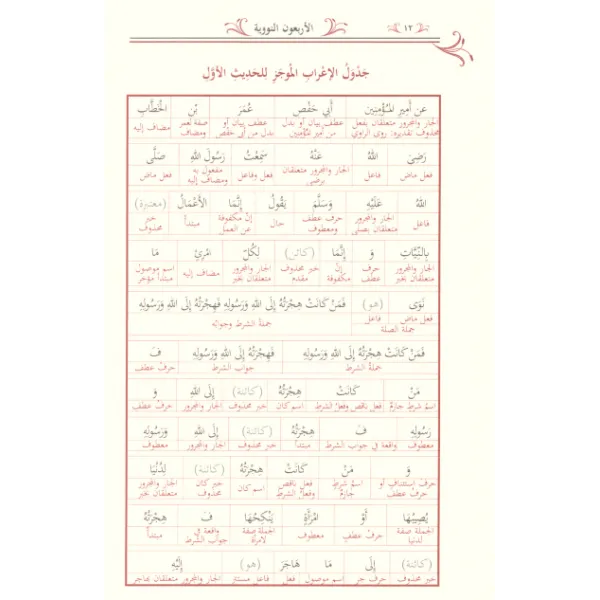 ١٢
الأربعون النووية
جَدْوَلُ الإِعْرَابِ المُوجَزِ لِلحَدِيثِ الأَوَّلِ
عن أَمِيرِ المُؤْمِنِين أَبِي حَفْصٍ عُمَرَ بْنِ الخَطَّابِ
الجار والمجرور متعلقان بفعل عطف بيان أو بدل عطف بيان أو صفة لعمر مضاف إليه
محذوف تقديره: روى الراوي من أمير المؤمنين بدل من أبي حفص ومضاف
رَضِيَ اللهُ عَنْهُ سَمِعْتُ رَسُولَ اللهِ صَلَّى
فعل ماض فاعل الجار والمجرور متعلقان فعل وفاعل مفعول به فعل ماض
برضي ومضاف إليه
اللهُ عَلَيْهِ وَسَلَّمَ يَقُولُ إِنَّمَا الأَعْمَالُ (معتبرة)
فاعل الجار والمجرور حرف عطف حال إنّ مكفوفة مبتدأ خبر
متعلقان بصلى ومعطوف عن العمل محذوف
بِالنِّيَّاتِ وَ إِنَّمَا (كائن) لِكُلِّ امْرِئٍ مَا
الجار والمجرور حرف إنّ خبر محذوف الجار والمجرور مضاف إليه اسم موصول
متعلقان بخبر عطف مكفوفة مقدم متعلقان بخبر مبتدأ مؤخر
نَوَى (هو) فَمَنْ كَانَتْ هِجْرَتُهُ إِلَى اللهِ وَرَسُولِهِ فَهِجْرَتُهُ إِلَى اللهِ وَرَسُولِهِ
فعل ماض فاعل جملة الشرط وجوابه
جملة الصلة
فَمَنْ كَانَتْ هِجْرَتُهُ إِلَى اللهِ وَرَسُولِهِ فَهِجْرَتُهُ إِلَى اللهِ وَرَسُولِهِ فَ
جملةُ الشرط جواب الشرط حرف عطف
مَنْ كَانَتْ هِجْرَتُهُ (كائنة) إِلَى اللهِ وَ
اسمُ شرطٍ جازمٌ فعل ناقص وفعلُ الشرط اسم كان خبر محذوف الجار والمجرور حرف عطف
رَسُولِهِ فَ هِجْرَتُهُ (كائنة) إِلَى اللهِ وَرَسُولِهِ
معطوف واقعة في جواب الشرط مبتدأ خبر محذوف الجار والمجرور معطوف
وَ مَنْ كَانَتْ هِجْرَتُهُ (كائنة) لِدُنْيَا
حرف استئناف أو اسمُ شرطٍ فعل ناقص اسم كان خبر كان الجار والمجرور
حرف عطف جازمٌ وفعلُ الشرط محذوف متعلقان بخبر
يُصِيبُهَا أَوْ امْرَأَةٍ يَنْكِحُهَا فَ هِجْرَتُهُ
الجملة صفة حرفُ عطفٍ معطوف الجملة صفة واقعة في مبتدأ
لدنيا لامرأة جواب الشرط
(كائنة) إِلَى مَا هَاجَرَ (هو) إِلَيْهِ
خبر محذوف حرف جر اسم موصول فعل فاعل مستتر الجار والمجرور متعلقان بهاجر